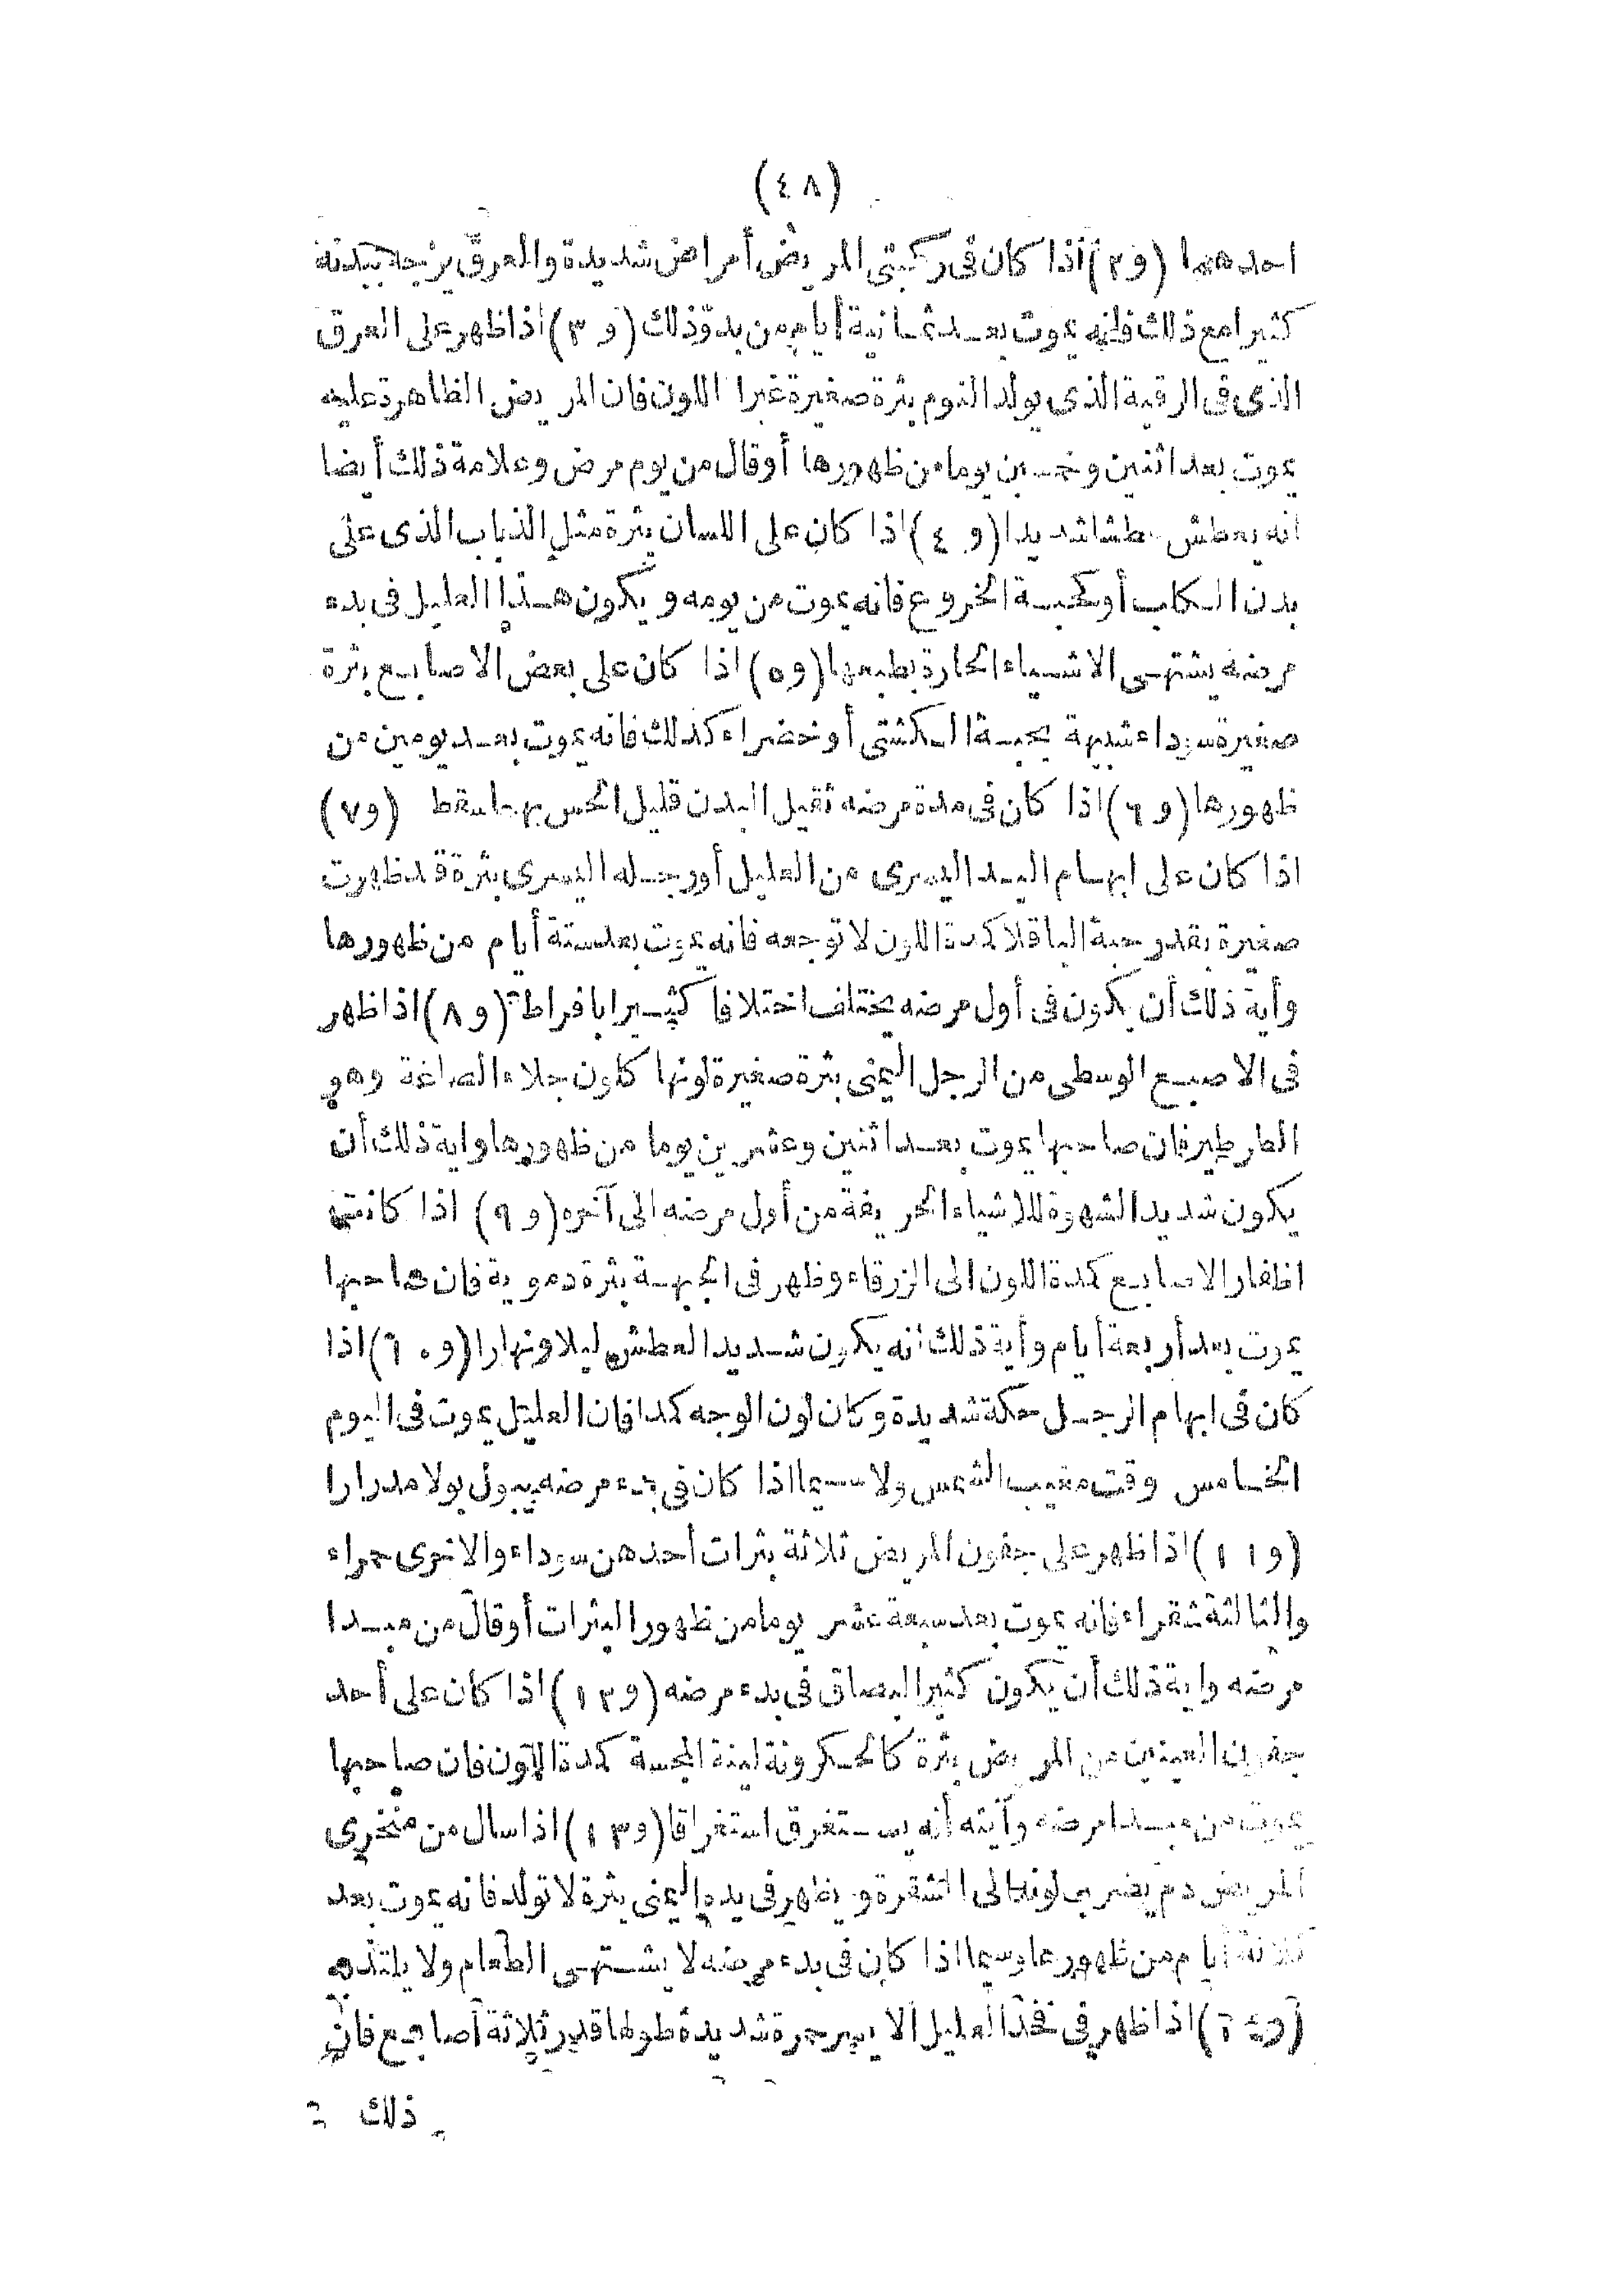 (٤٨)
احدهما (و٢) اذا كان فى ركبتى المريض أمراض شديدة والعرق بدنه
كثيرا مع ذلك فانه يموت بعد ثمانية أيام من بدو ذلك (و ٣) اذا ظهر على العرق
الذى فى الرقبة الذى يولد النوم بثرة صغيرة غبرا اللون فان المريض الظاهرة عليه
يموت بعد اثنين وخمسين يوما من ظهورها أو قال من يوم مرض وعلامة ذلك أيضا
انه يعطش عطشا شديدا (و ٤) اذا كان على اللسان بثرة مثل الذباب الذى على
بدن الكاب أو كحبة الخروع فانه يموت من يومه ويكون هذا العليل فى بدء
مرضه يشتهى الاشياء الحارة بطبعها (و٥) اذا كان على بعض الاصابع بثرة
صغيرة سوداء شبيهة بحبة الكشتى أو خضراء كذلك فانه يموت بعد يومين من
ظهورها (و ٦) اذا كان فى مدة مرضه ثقيل البدن قليل الحس بهما سقط (و٧)
اذا كان على ابهام اليد اليسرى من العليل أو رجله اليسرى بثرة قد ظهرت
صغيرة بقدر حبة الباقلا كمدة اللون لا توجعه فانه يموت بعد ستة أيام من ظهورها
وأية ذلك أن يكون فى أول مرضه يختلف اختلافا كثيرا بافراط (و ٨) اذا ظهر
فى الاصبع الوسطى من الرجل اليمنى بثرة صغيرة لونها كلون جلاء الصاغة وهو
الطرطير فان صاحبها يموت بعد اثنين وعشرين يوما من ظهورها واية ذلك أن
يكون شديد الشهوة للاشياء الحريفة من أول مرضه الى آخره (و ٩) اذا كانت
اظفار الاصابع كمدة اللون الى الزرقاء وظهر فى الجبهة بثرة دموية فان صاحبها
يموت بعد أربعة أيام وأية ذلك أنه يكون شديد العطش ليلا ونهارا (و ١٠) اذا
كان فى ابهام الرجل حكة شديدة وكان لون الوجه كمدا فان العليل يموت فى اليوم
الخامس وقت مغيب الشمس ولا سيما اذا كان فى بدء مرضه يبول بولا مدرارا
(و ١١) اذا ظهر على جفون المريض ثلاثة بثرات أحدهن سوداء والاخرى حمراء
والثالثة شقراء فانه يموت بعد سبعة عشر يوما من ظهور البثرات أو قال من مبدا
مرضه واية ذلك أن يكون كثير البصاق فى بدء مرضه (و١٢) اذا كان على أحد
جفون العينين من المريض بثرة لينة المجسة كمدة اللون فان صاحبها
يموت من مبدا مرضه وآيته أنه يستغرق استغراقا (و١٣) اذا سال من منخرى
المريض دم يضرب لونه الى الشقرة ويظهر فى يده اليمنى بثرة لا تولد فانه يموت بعد
ثلاثة أيام من ظهورها وسيما اذا كان فى بدء مرضه لا يشتهى الطعام ولا يلتذ به
(و١٤) اذا ظهر فى فخذ العليل الايسر حمرة شديدة طولها قدر ثلاثة أصابع فان
ذلك